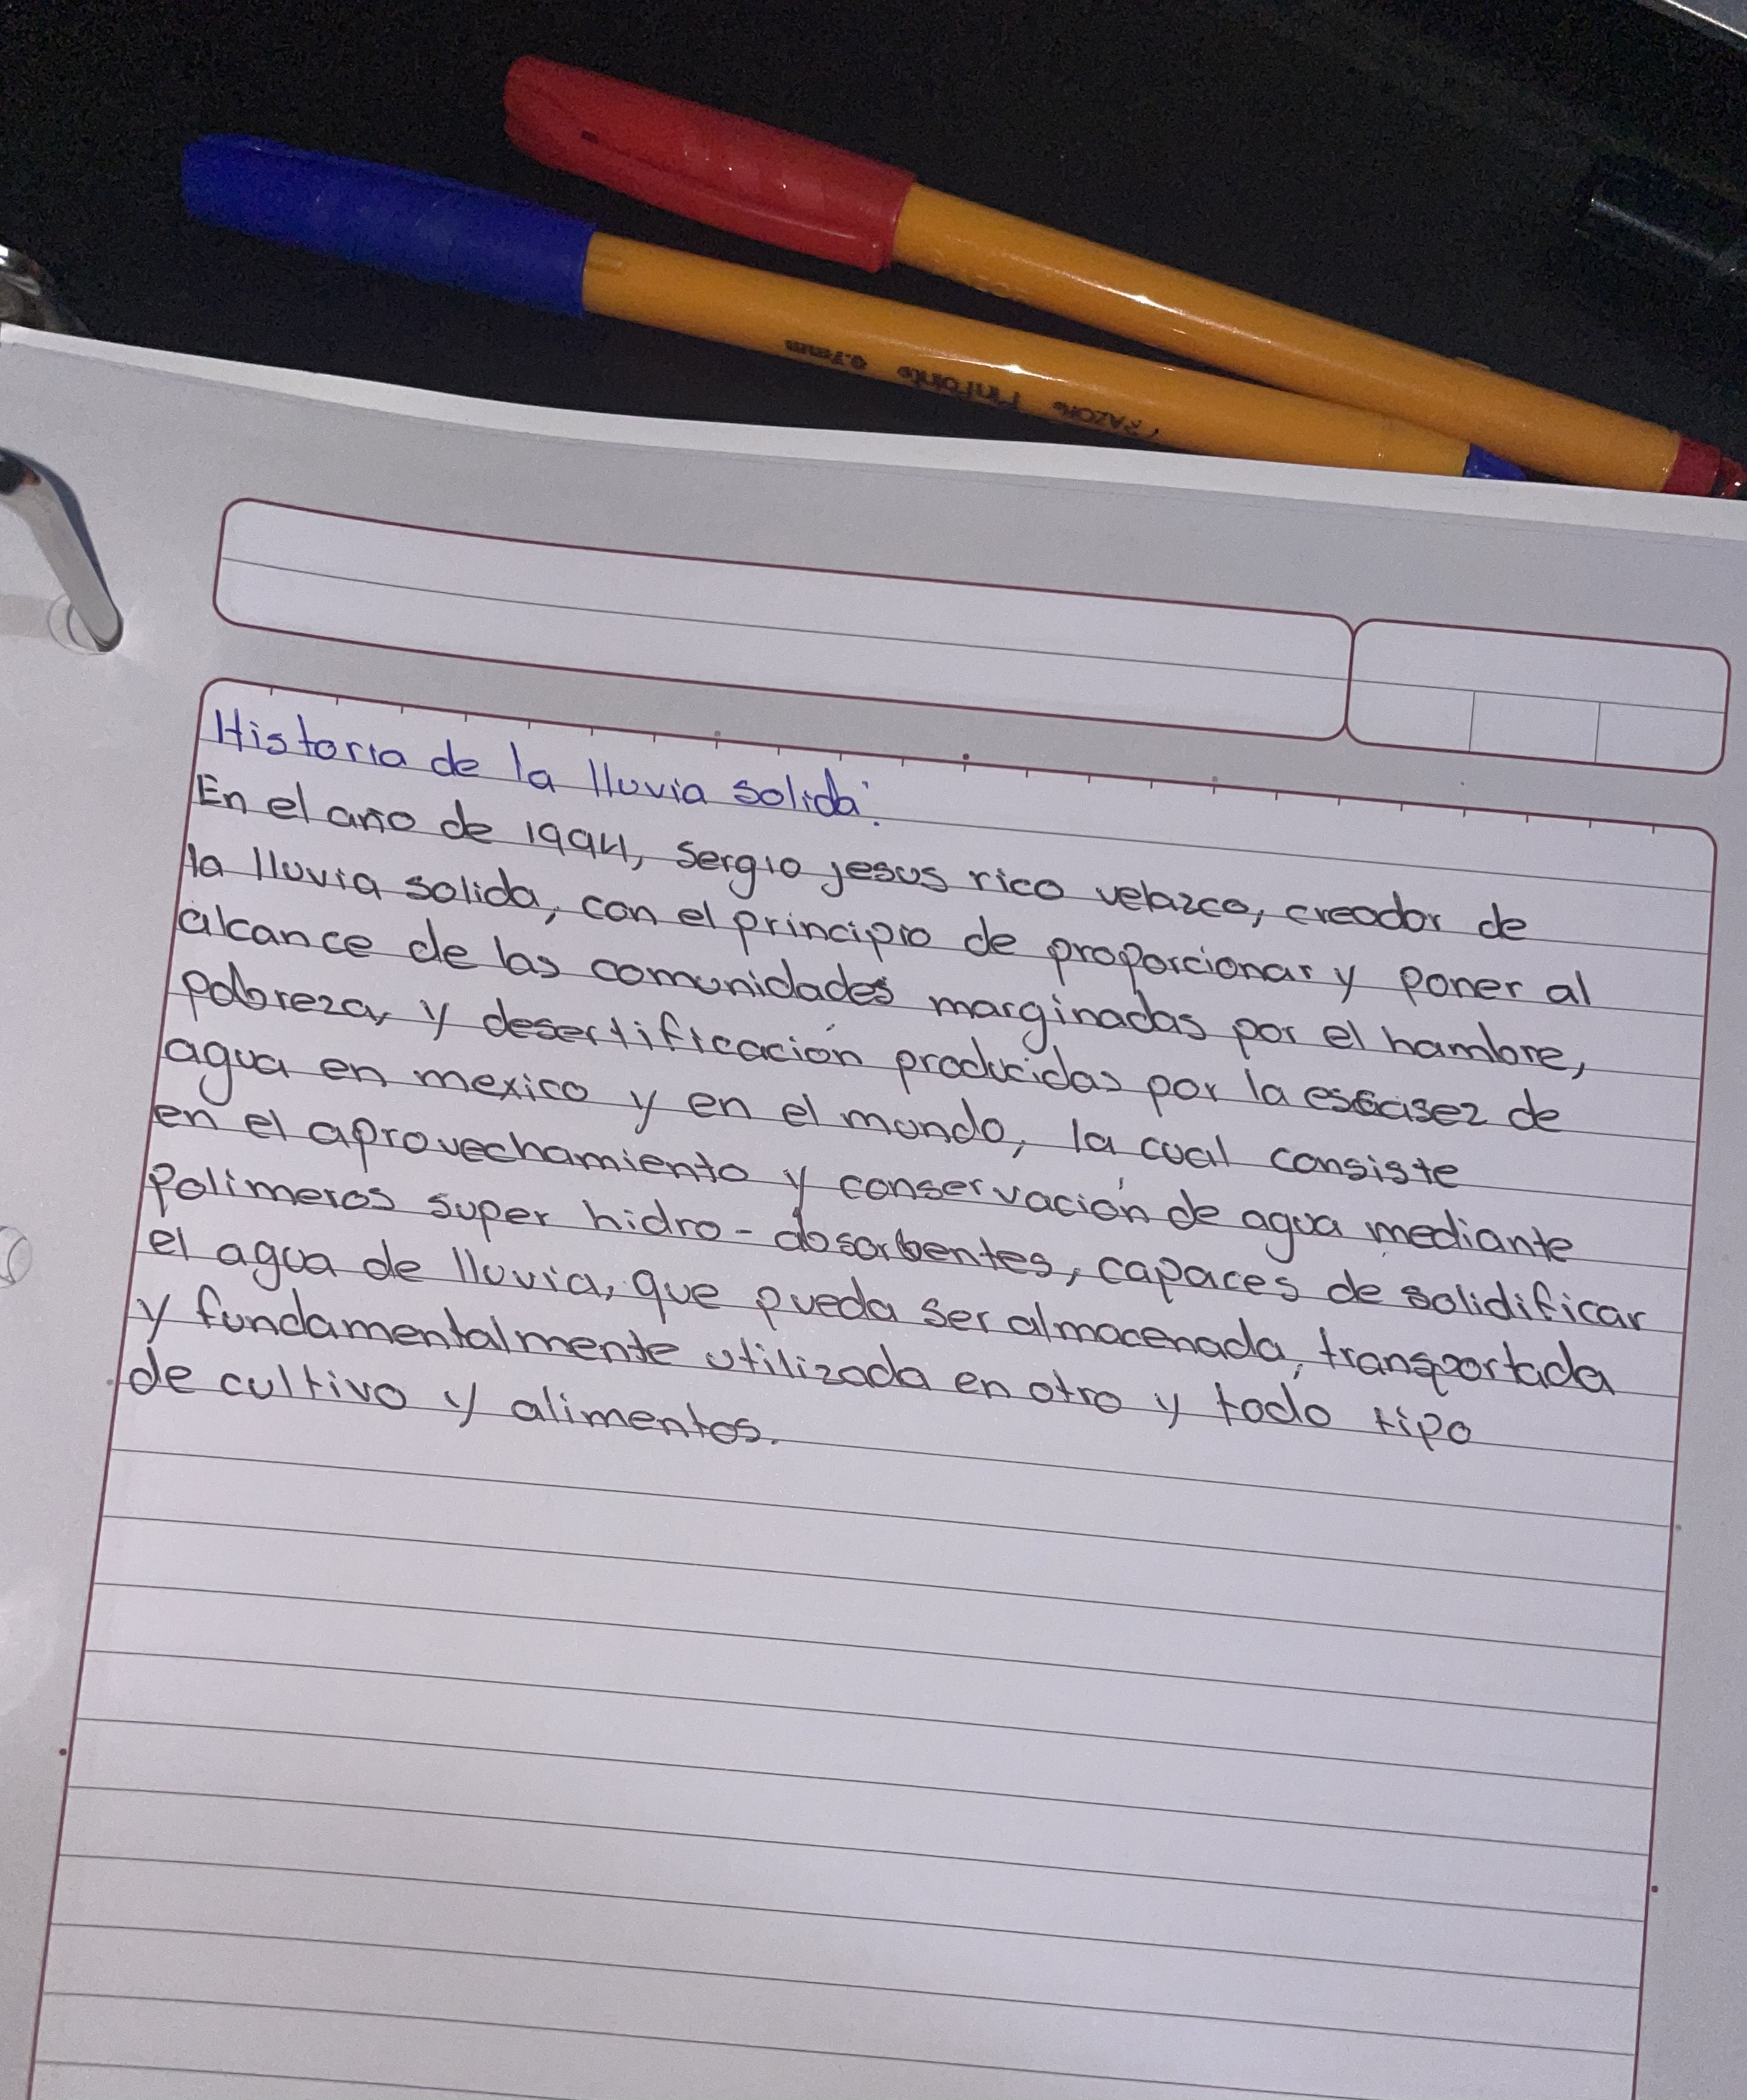 AZOR® Pinpoint® 0.7mm
Historia de la lluvia solida:
En el año de 1994, sergio jesus rico velazco, creador de
la lluvia solida, con el principio de proporcionar y poner al
alcance de las comunidades marginadas por el hambre,
pobreza, y desertificación producidas por la escasez de
agua en mexico y en el mundo, la cual consiste
en el aprovechamiento y conservación de agua mediante
Polimeros super hidro-absorbentes, capaces de solidificar
el agua de lluvia, que pueda ser almacenada, transportada
y fundamentalmente utilizada en otro y todo tipo
de cultivo y alimentos.